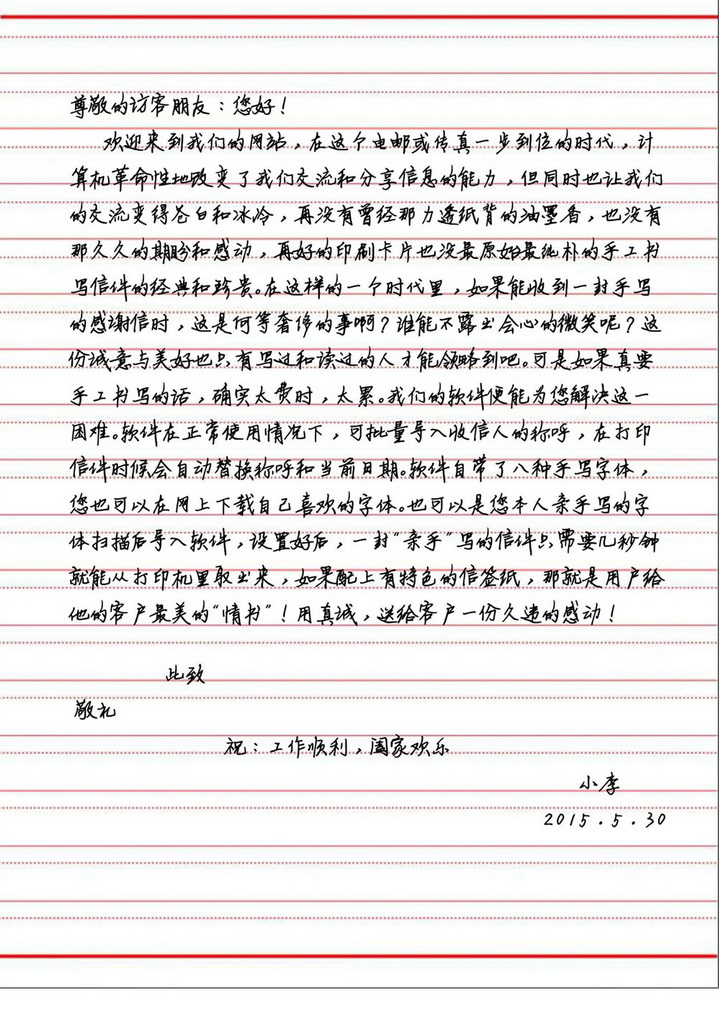 尊敬的访客朋友：您好！
欢迎来到我们的网站，在这个电邮或传真一步到位的时代，计
算机革命性地改变了我们交流和分享信息的能力，但同时也让我们
的交流变得苍白和冰冷，再没有曾经那力透纸背的油墨香，也没有
那久久的期盼和感动，再好的印刷卡片也没最原始最纯朴的手工书
写信件的经典和珍贵。在这样的一个时代里，如果能收到一封手写
的感谢信时，这是何等奢侈的事啊？谁能不露出会心的微笑呢？这
份诚意与美好也只有写过和读过的人才能领略到吧。可是如果真要
手工书写的话，确实太费时，太累。我们的软件便能为您解决这一
困难。软件在正常使用情况下，可批量导入收信人的称呼，在打印
信件时候会自动替换称呼和当前日期。软件自带了八种手写字体，
您也可以在网上下载自己喜欢的字体。也可以是您本人亲手写的字
体扫描后导入软件，设置好后，一封"亲手"写的信件只需要几秒钟
就能从打印机里取出来，如果配上有特色的信签纸，那就是用户给
他的客户最美的"情书"！用真诚，送给客户一份久违的感动！
此致
敬礼
祝：工作顺利，阖家欢乐
小李
2015.5.30